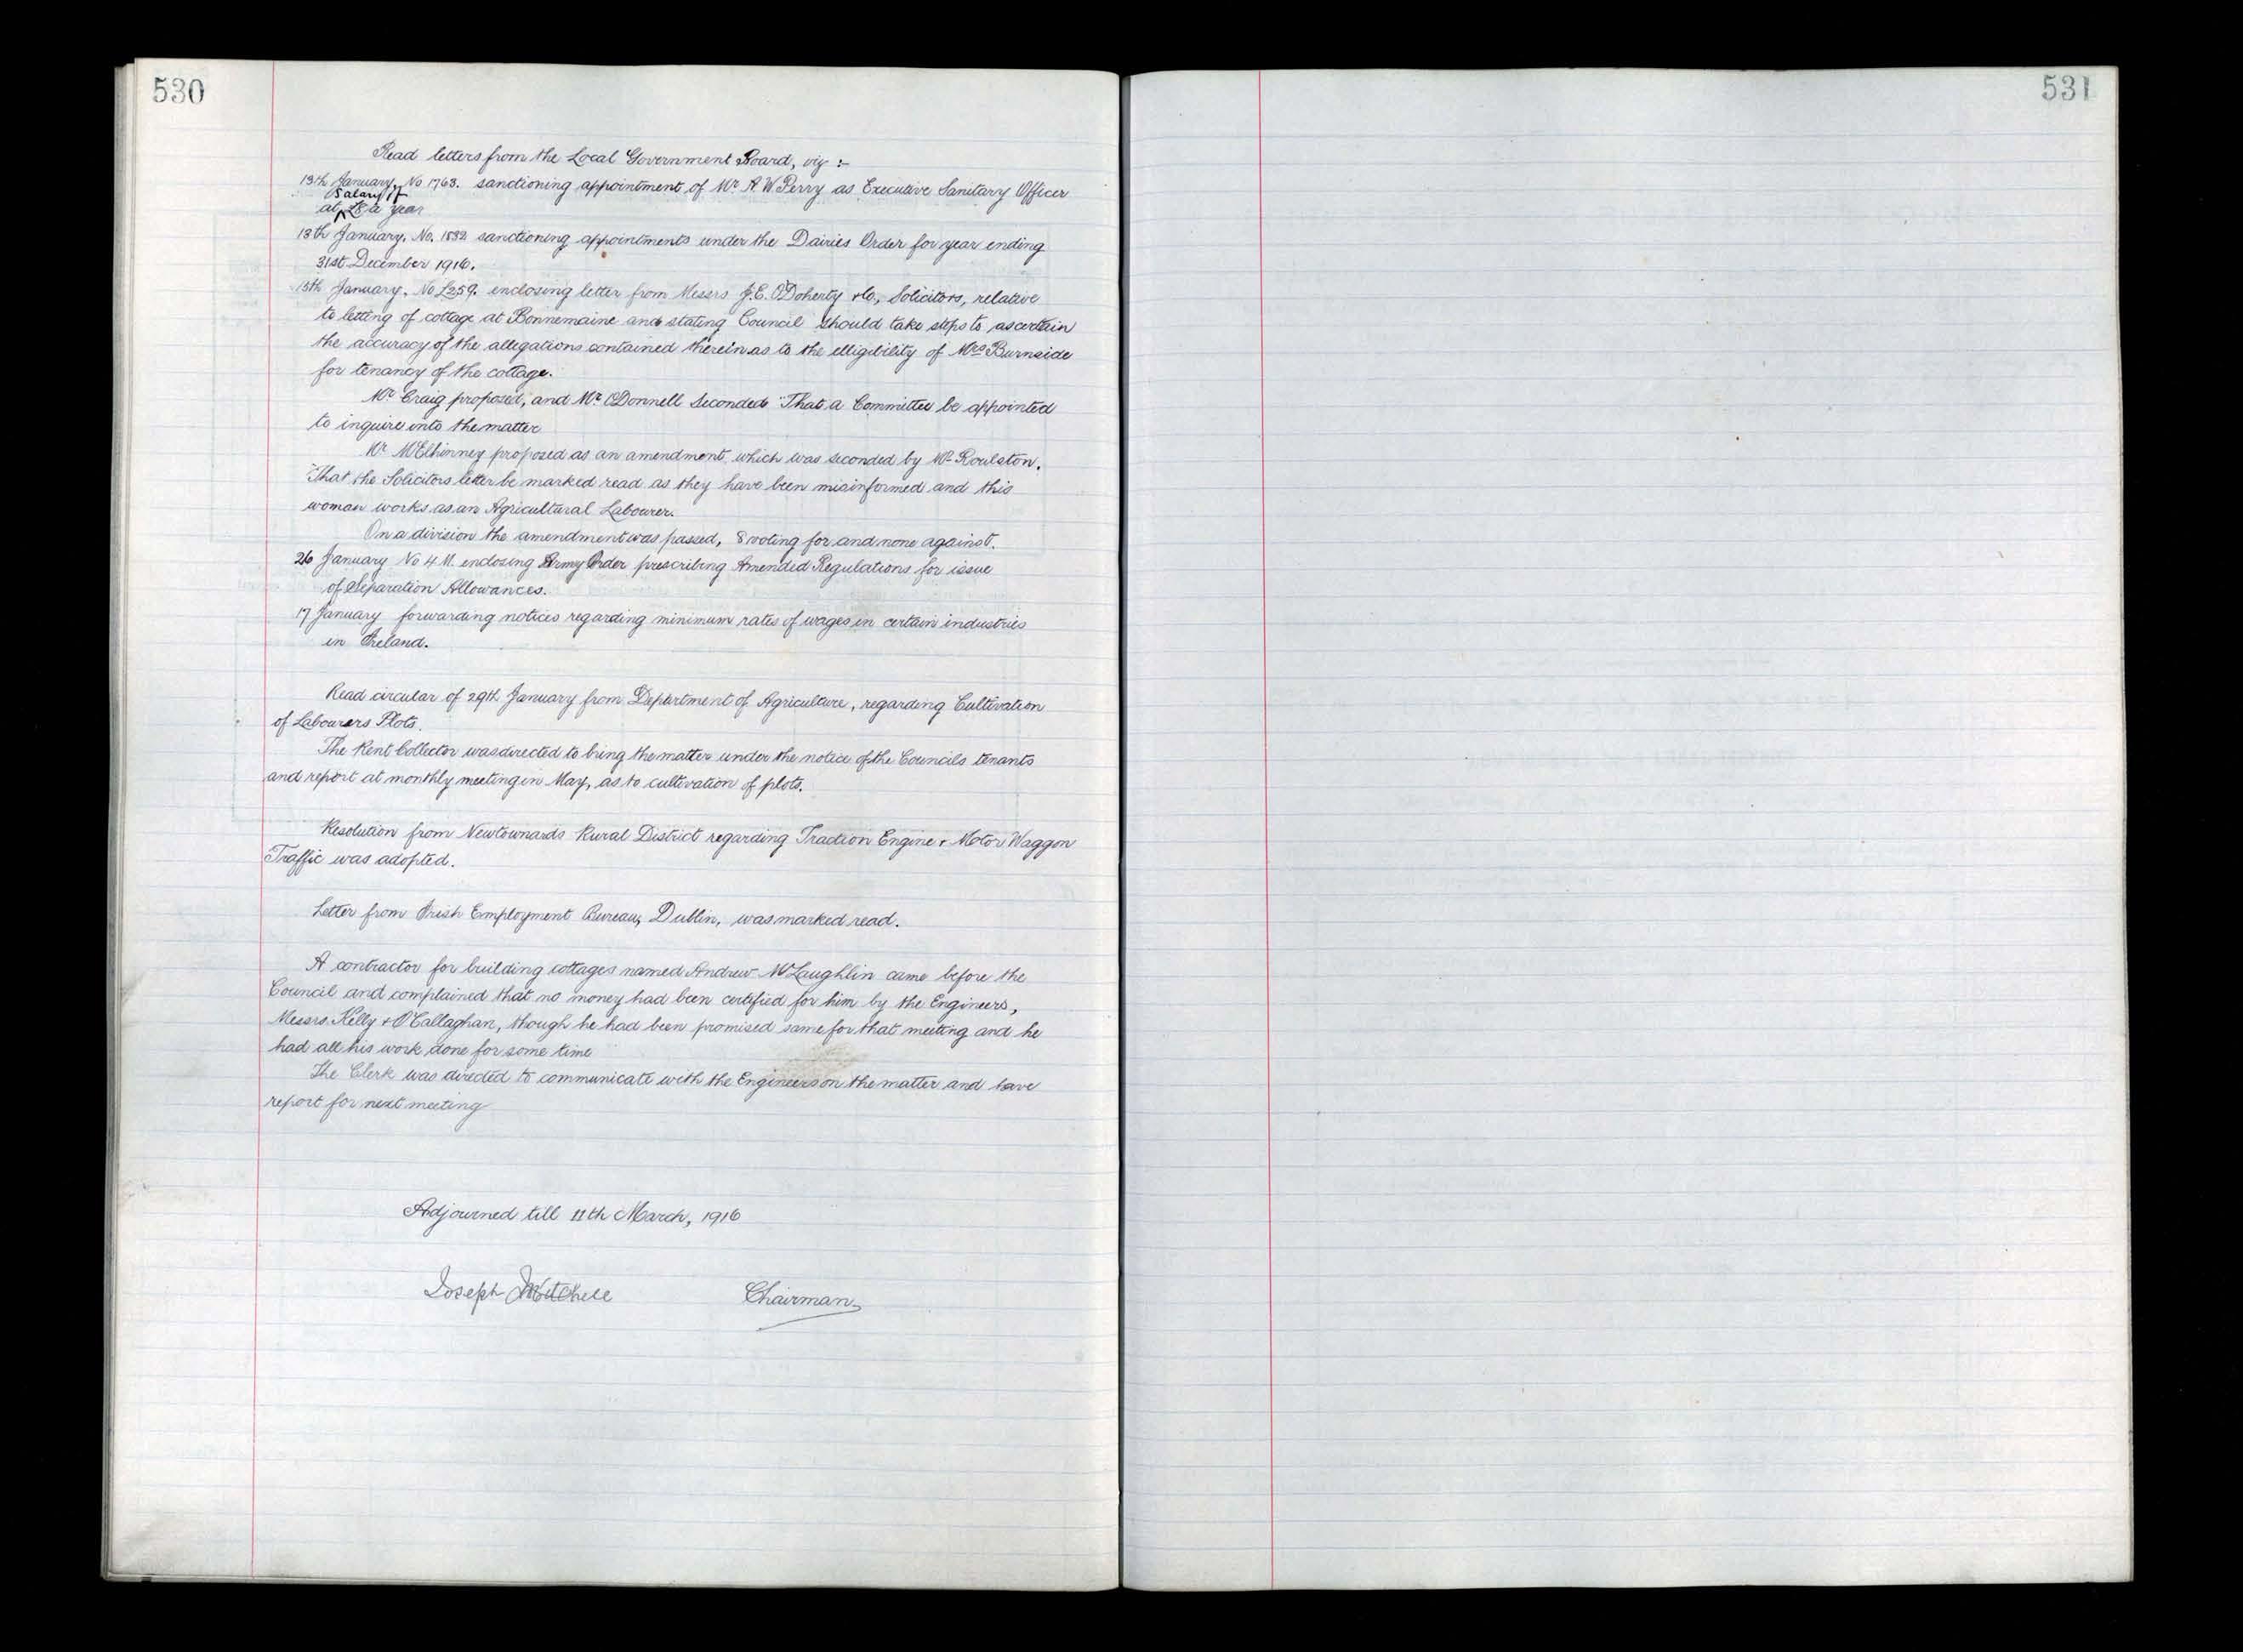 530
Read letters from the Local Government Board, viz :-
13th January, No 1763. sanctioning appointment of Mr A W Perry as Executive Sanitary Officer
salary of
at £8 a year
13th January. No. 1832 sanctioning appointments under the Dairies Order for year ending
31st December 1916.
15th January. No L259. enclosing letter from Messrs J.E. O'Doherty & Co, Solicitors, relative
to letting of cottage at Bonnemaine and stating Council should take steps to ascertain
the accuracy of the allegations contained therein as to the elligibility of Mrs Burnside
for tenancy of the cottage.
Mr Craig proposed, and Mr O'Donnell Seconded "That a Committee be appointed
to inquire into the matter
Mr McElhinney proposed as an amendment, which was seconded by Mr Roulston.
"That the Solicitors letter be marked read as they have been misinformed and this
woman works as an Agricultural Labourer.
On a division the amendment was passed, 8 voting for and none against.
26 January No 4 M. enclosing Army Order prescribing Amended Regulations for issue
of Separation Allowances.
17 January forwarding notices regarding minimum rates of wages in certain industries
in Ireland.
Read circular of 29th January from Department of Agriculture, regarding Cultivation
of Labourers Plots.
The Rent Collector was directed to bring the matter under the notice of the Councils tenants
and report at monthly meeting in May, as to cultivation of plots.
Resolution from Newtownards Rural District regarding Traction Engine & Motor Waggon
Traffic was adopted.
Letter from Irish Employment Bureau, Dublin, was marked read.
A contractor for building cottages named Andrew McLaughlin came before the
Council and complained that no money had been certified for him by the Engineers,
Messrs. Kelly & O'Callaghan, though he had been promised same for that meeting and he
had all his work done for some time
The Clerk was directed to communicate with the Engineers on the matter and have
report for next meeting
Adjourned till 11th March, 1916
Joseph Mitchell Chairman
531